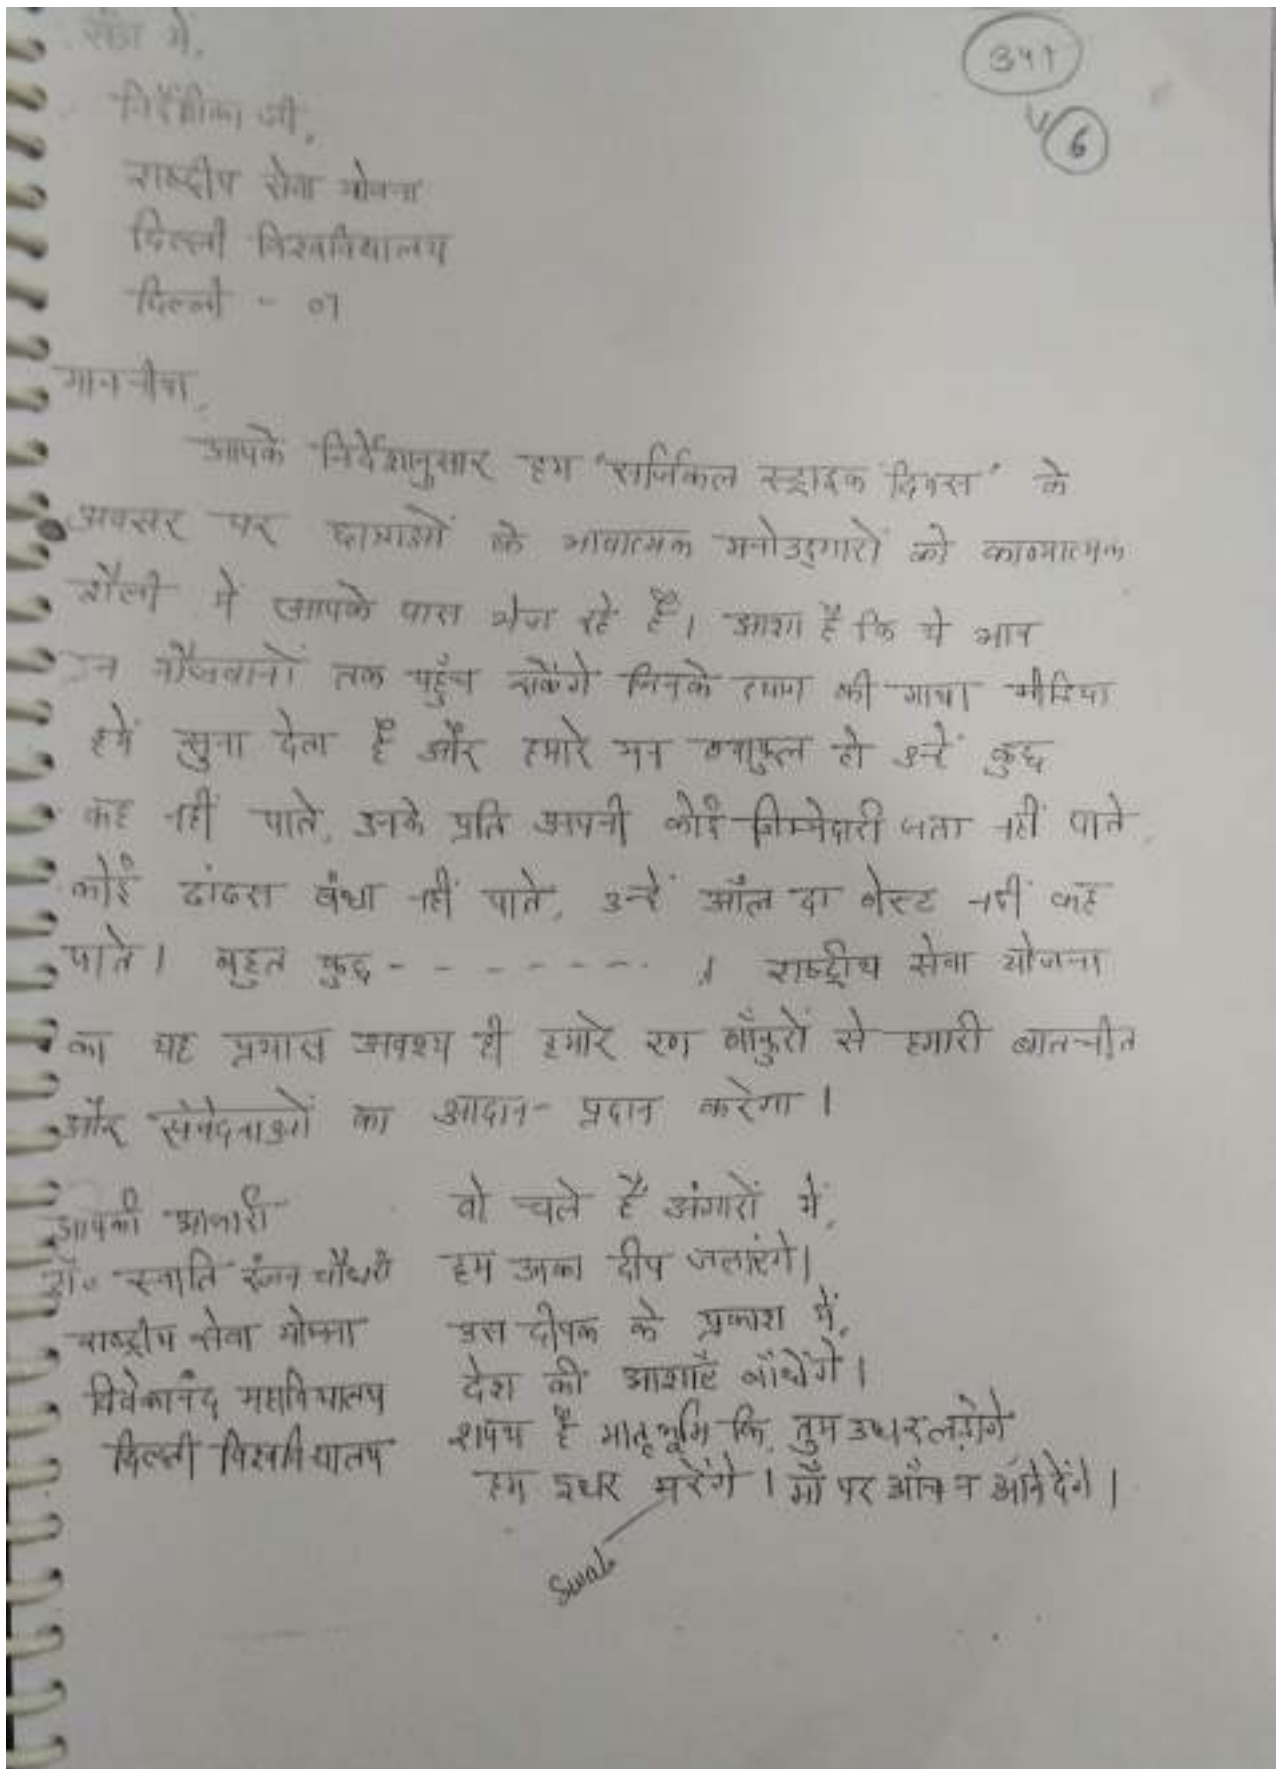 सेवा में,
341
6
निर्देशिका जी,
राष्ट्रीय सेवा योजना
दिल्ली विश्वविद्यालय
दिल्ली - 07
माननीया,
आपके निर्देशानुसार हम 'सर्जिकल स्ट्राइक दिवस' के
अवसर पर छात्राओं के भावात्मक मनोउद्गारों को काव्यात्मक
शैली में आपके पास भेज रहे हैं। आशा है कि ये भाव
उन नौजवानों तक पहुँच सकेंगे जिनके त्याग की गाथा मीडिया
हमें सुना देता है और हमारे मन व्याकुल हो उन्हें कुछ
कह नहीं पाते, उनके प्रति अपनी कोई जिम्मेदारी जता नहीं पाते,
कोई ढांढस बंधा नहीं पाते, उन्हें ऑल दा बेस्ट नहीं कह
पाते। बहुत कुछ - - - - - - - - । राष्ट्रीय सेवा योजना
का यह प्रयास अवश्य ही हमारे रण बाँकुरों से हमारी बातचीत
और संवेदनाओं का आदान-प्रदान करेगा।
आपकी आभारी
डॉ० स्वाति रंजन चौधरी
राष्ट्रीय सेवा योजना
विवेकानंद महाविद्यालय
दिल्ली विश्वविद्यालय
वो चले हैं अंगारों में,
हम उनका दीप जलाएंगे।
उस दीपक के प्रकाश में,
देश की आशाएँ बाँधेंगे।
शपथ है मातृभूमि कि, तुम उधर लड़ोगे
हम इधर मरेंगे। माँ पर आँच न आने देंगे।
Swati